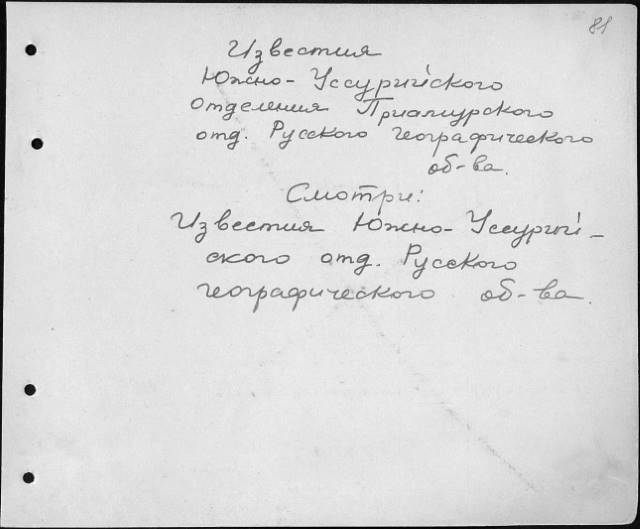 81
Известия
Южно-Уссурийского
отделения Приамурского
отд. Русского географического
об-ва.
Смотри:
Известия Южно-Уссурий-
ского отд. Русского
географического об-ва.